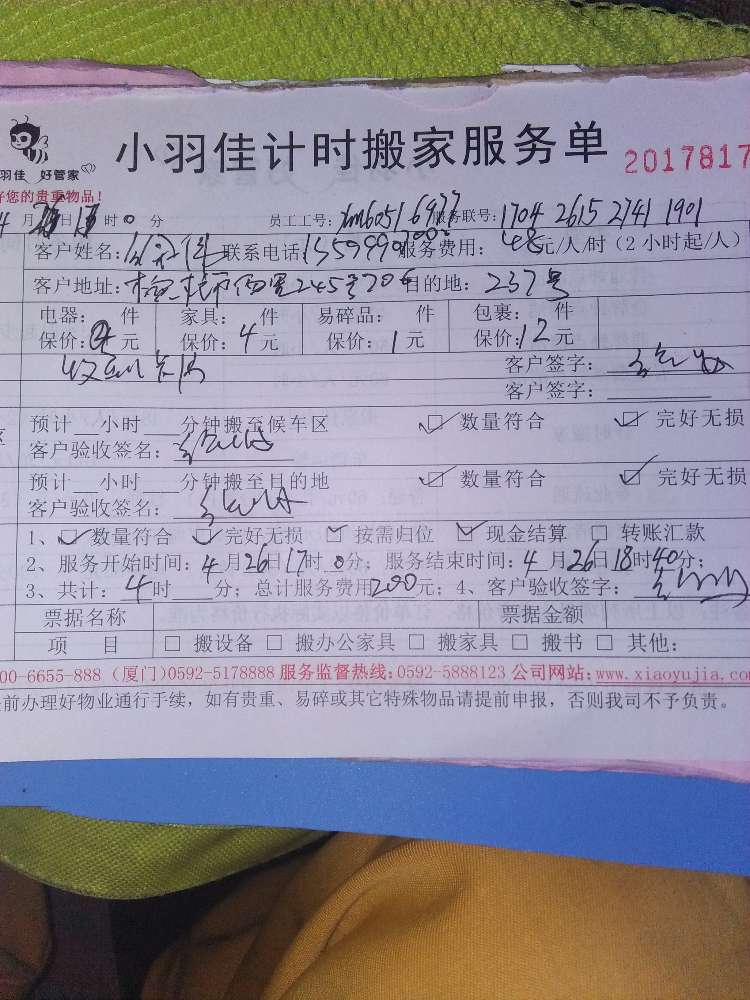 小羽佳计时搬家服务单 2017817
羽佳 好管家
好您的贵重物品!
月 日 时0分 员工工号: 服务联号:1704 2615 2741 1901
客户姓名: 联系电话: 服务费用:48元/人/时(2小时起/人)
客户地址: 245号 目的地:237号
电器: 件 家具: 件 易碎品: 件 包裹: 件
保价: 元 保价:4元 保价:1元 保价:12元
客户签字:
客户签字:
预计 小时 分钟搬至候车区 数量符合 完好无损
客户验收签名:
预计 小时 分钟搬至目的地 数量符合 完好无损
客户验收签名:
1、 数量符合 完好无损 按需归位 现金结算 转账汇款
2、服务开始时间:4月26日17时0分;服务结束时间:4月26日18时40分;
3、共计:4时 分;总计服务费用200元;4、客户验收签字:
票据名称 票据金额
项 目 搬设备 搬办公家具 搬家具 搬书 其他:
00-6655-888(厦门)0592-5178888 服务监督热线:0592-5888123 公司网站:www.xiaoyujia.com
前办理好物业通行手续,如有贵重、易碎或其它特殊物品请提前申报,否则我司不予负责。